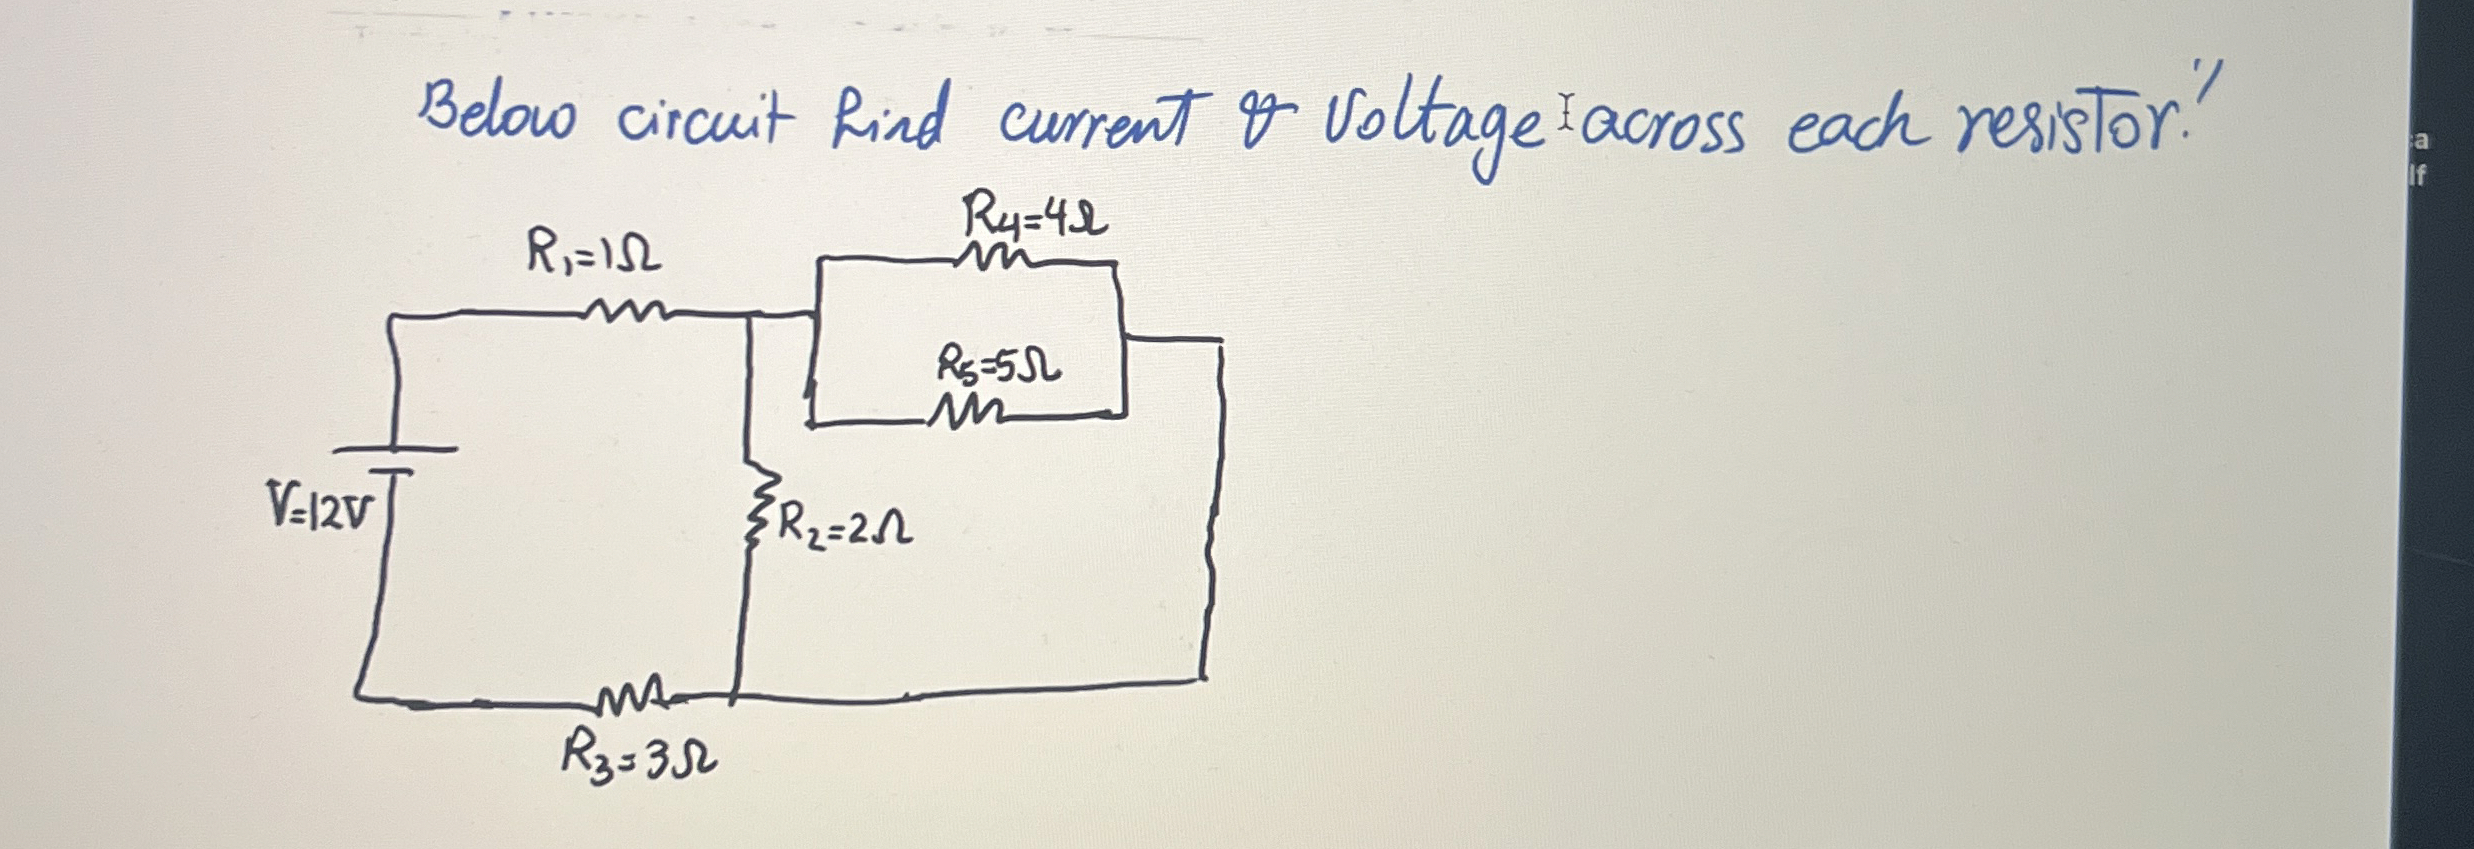 Below circuit find current & Voltage across each resistor?
R4=4Ω
R1=1Ω
R5=5Ω
V=12V
R2=2Ω
R3=3Ω
a
lf